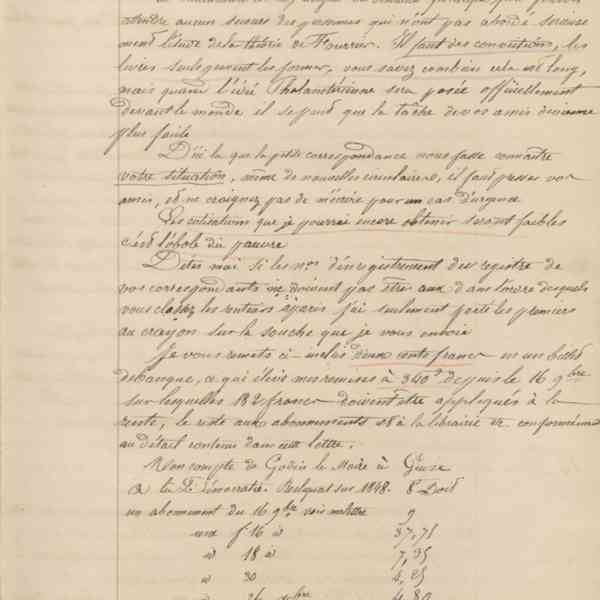 obtenir aucun secours des personnes qui n'ont pas abordé sérieuse
ment l'étude de la théorie de Fourrier. Il faut des convictions, les
livres seuls peuvent les former, vous savez combien cela est long,
mais quand l'idée Phalanstérienne sera posée officiellement
devant le monde il se peut que la tâche de vos amis devienne
plus facile
D'ici là que la petite correspondance nous fasse connaître
votre situation, même de nouvelles circulaires, il faut presser vos
amis, et ne craignez pas de m'écrire pour un cas d'urgence
Les cotisations que je pourrai encore obtenir seront faibles
c'est l'obole du pauvre
Dites moi si les nos d'enregistrement du registre de
vos correspondants ne doivent pas être aux dans l'ordre desquels
vous classez les rentiers à paris j'ai seulement porté les premiers
au crayon sur la souche que je vous envoie
Je vous remets ci-inclus deux cents francs en un billet
de banque, ce qui élève mes remises à 340 depuis le 16 9bre
sur lesquelles 132 francs doivent être appliqués à la
rente, le reste aux abonnements et à la librairie &c conformément
au détail contenu dans cette lettre.
Mon compte de Godin le Maire à Guise
à la Démocratie 1848. Doit
un abonnement du 16 9bre 9
16 37,71
18 7,35
30 4,25
4,80